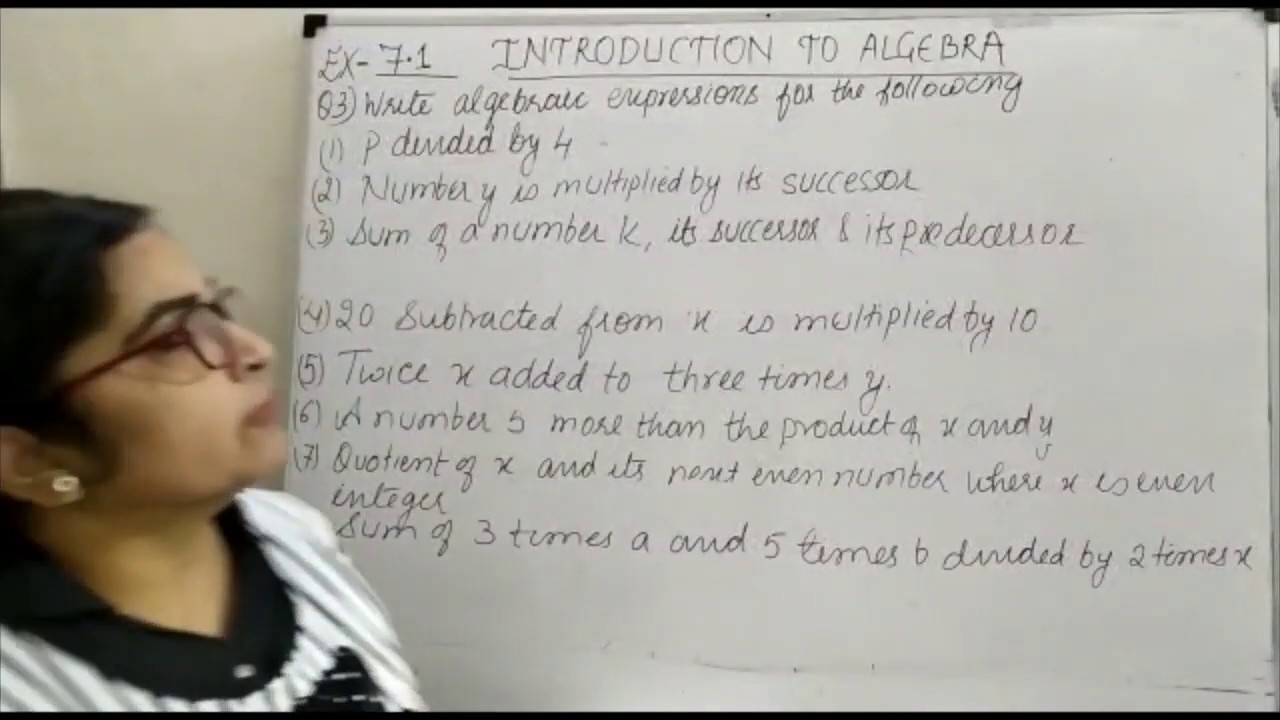 EX- 7.1 INTRODUCTION TO ALGEBRA
Q3) Write algebraic expressions for the following
(1) P divided by 4
(2) Number y is multiplied by its successor
(3) Sum of a number k, its successor & its predecessor
(4) 20 Subtracted from x is multiplied by 10
(5) Twice x added to three times y.
(6) A number 5 more than the product of x and y
(7) Quotient of x and its next even number where x is even
integer
Sum of 3 times a and 5 times b divided by 2 times x